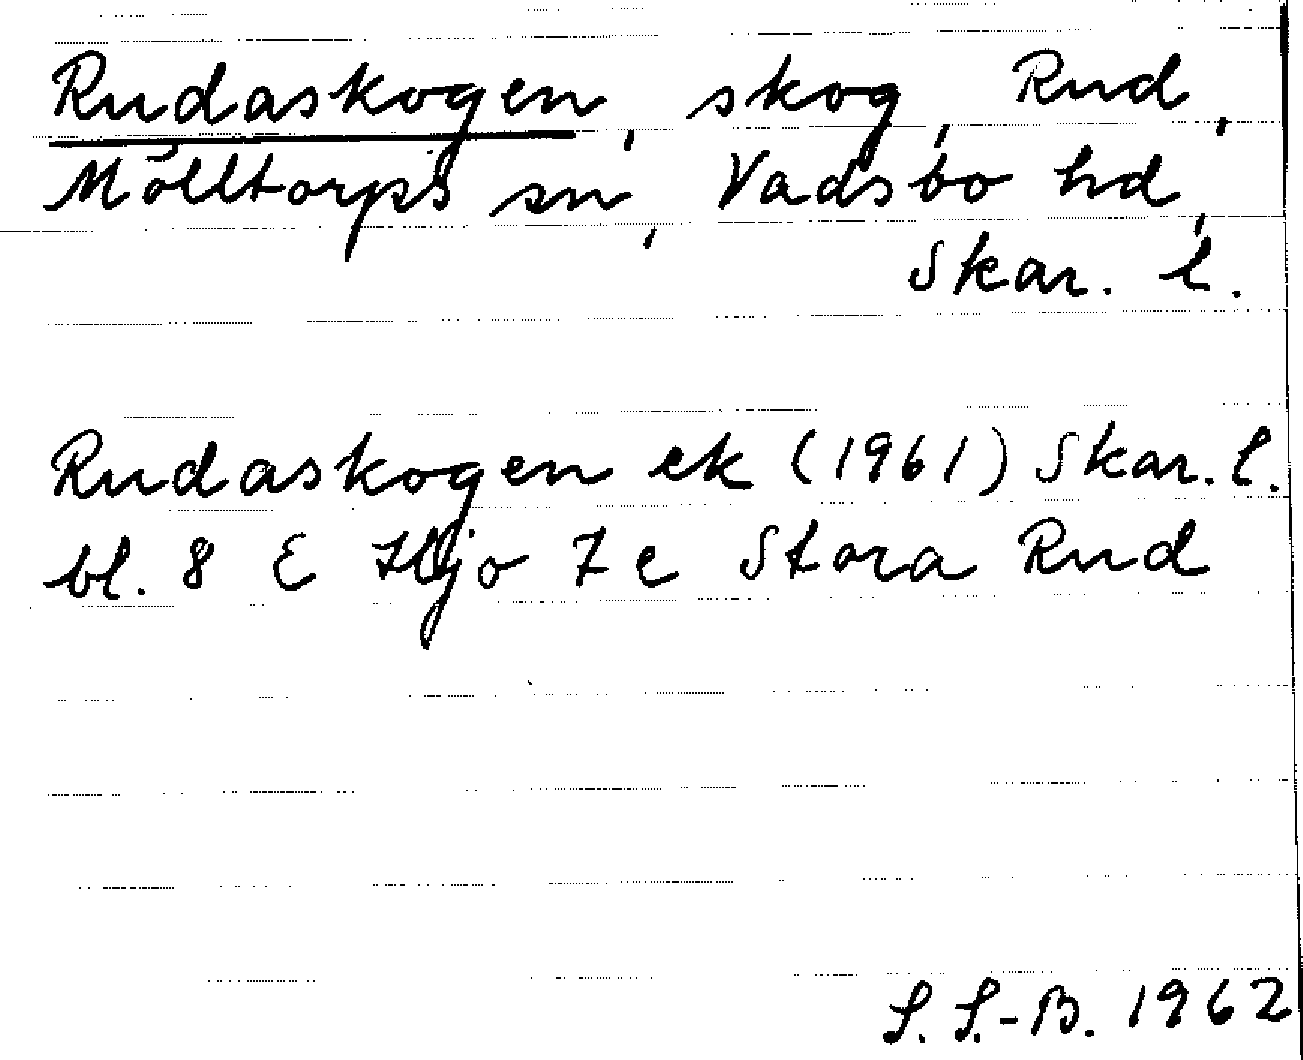 Rudaskogen, skog, Rud,
Mölltorps sn, Vadsbo hd,
Skar. l.
Rudaskogen ek (1961) Skar. l.
bl. 8 E Hjo 7 e Stora Rud
S. S.-B. 1962